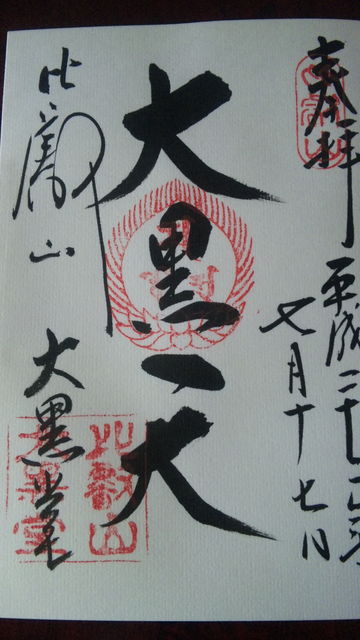 奉拝
平成二十
七月十七日
大黒天
比叡山
大黒堂
比叡山
大黒堂